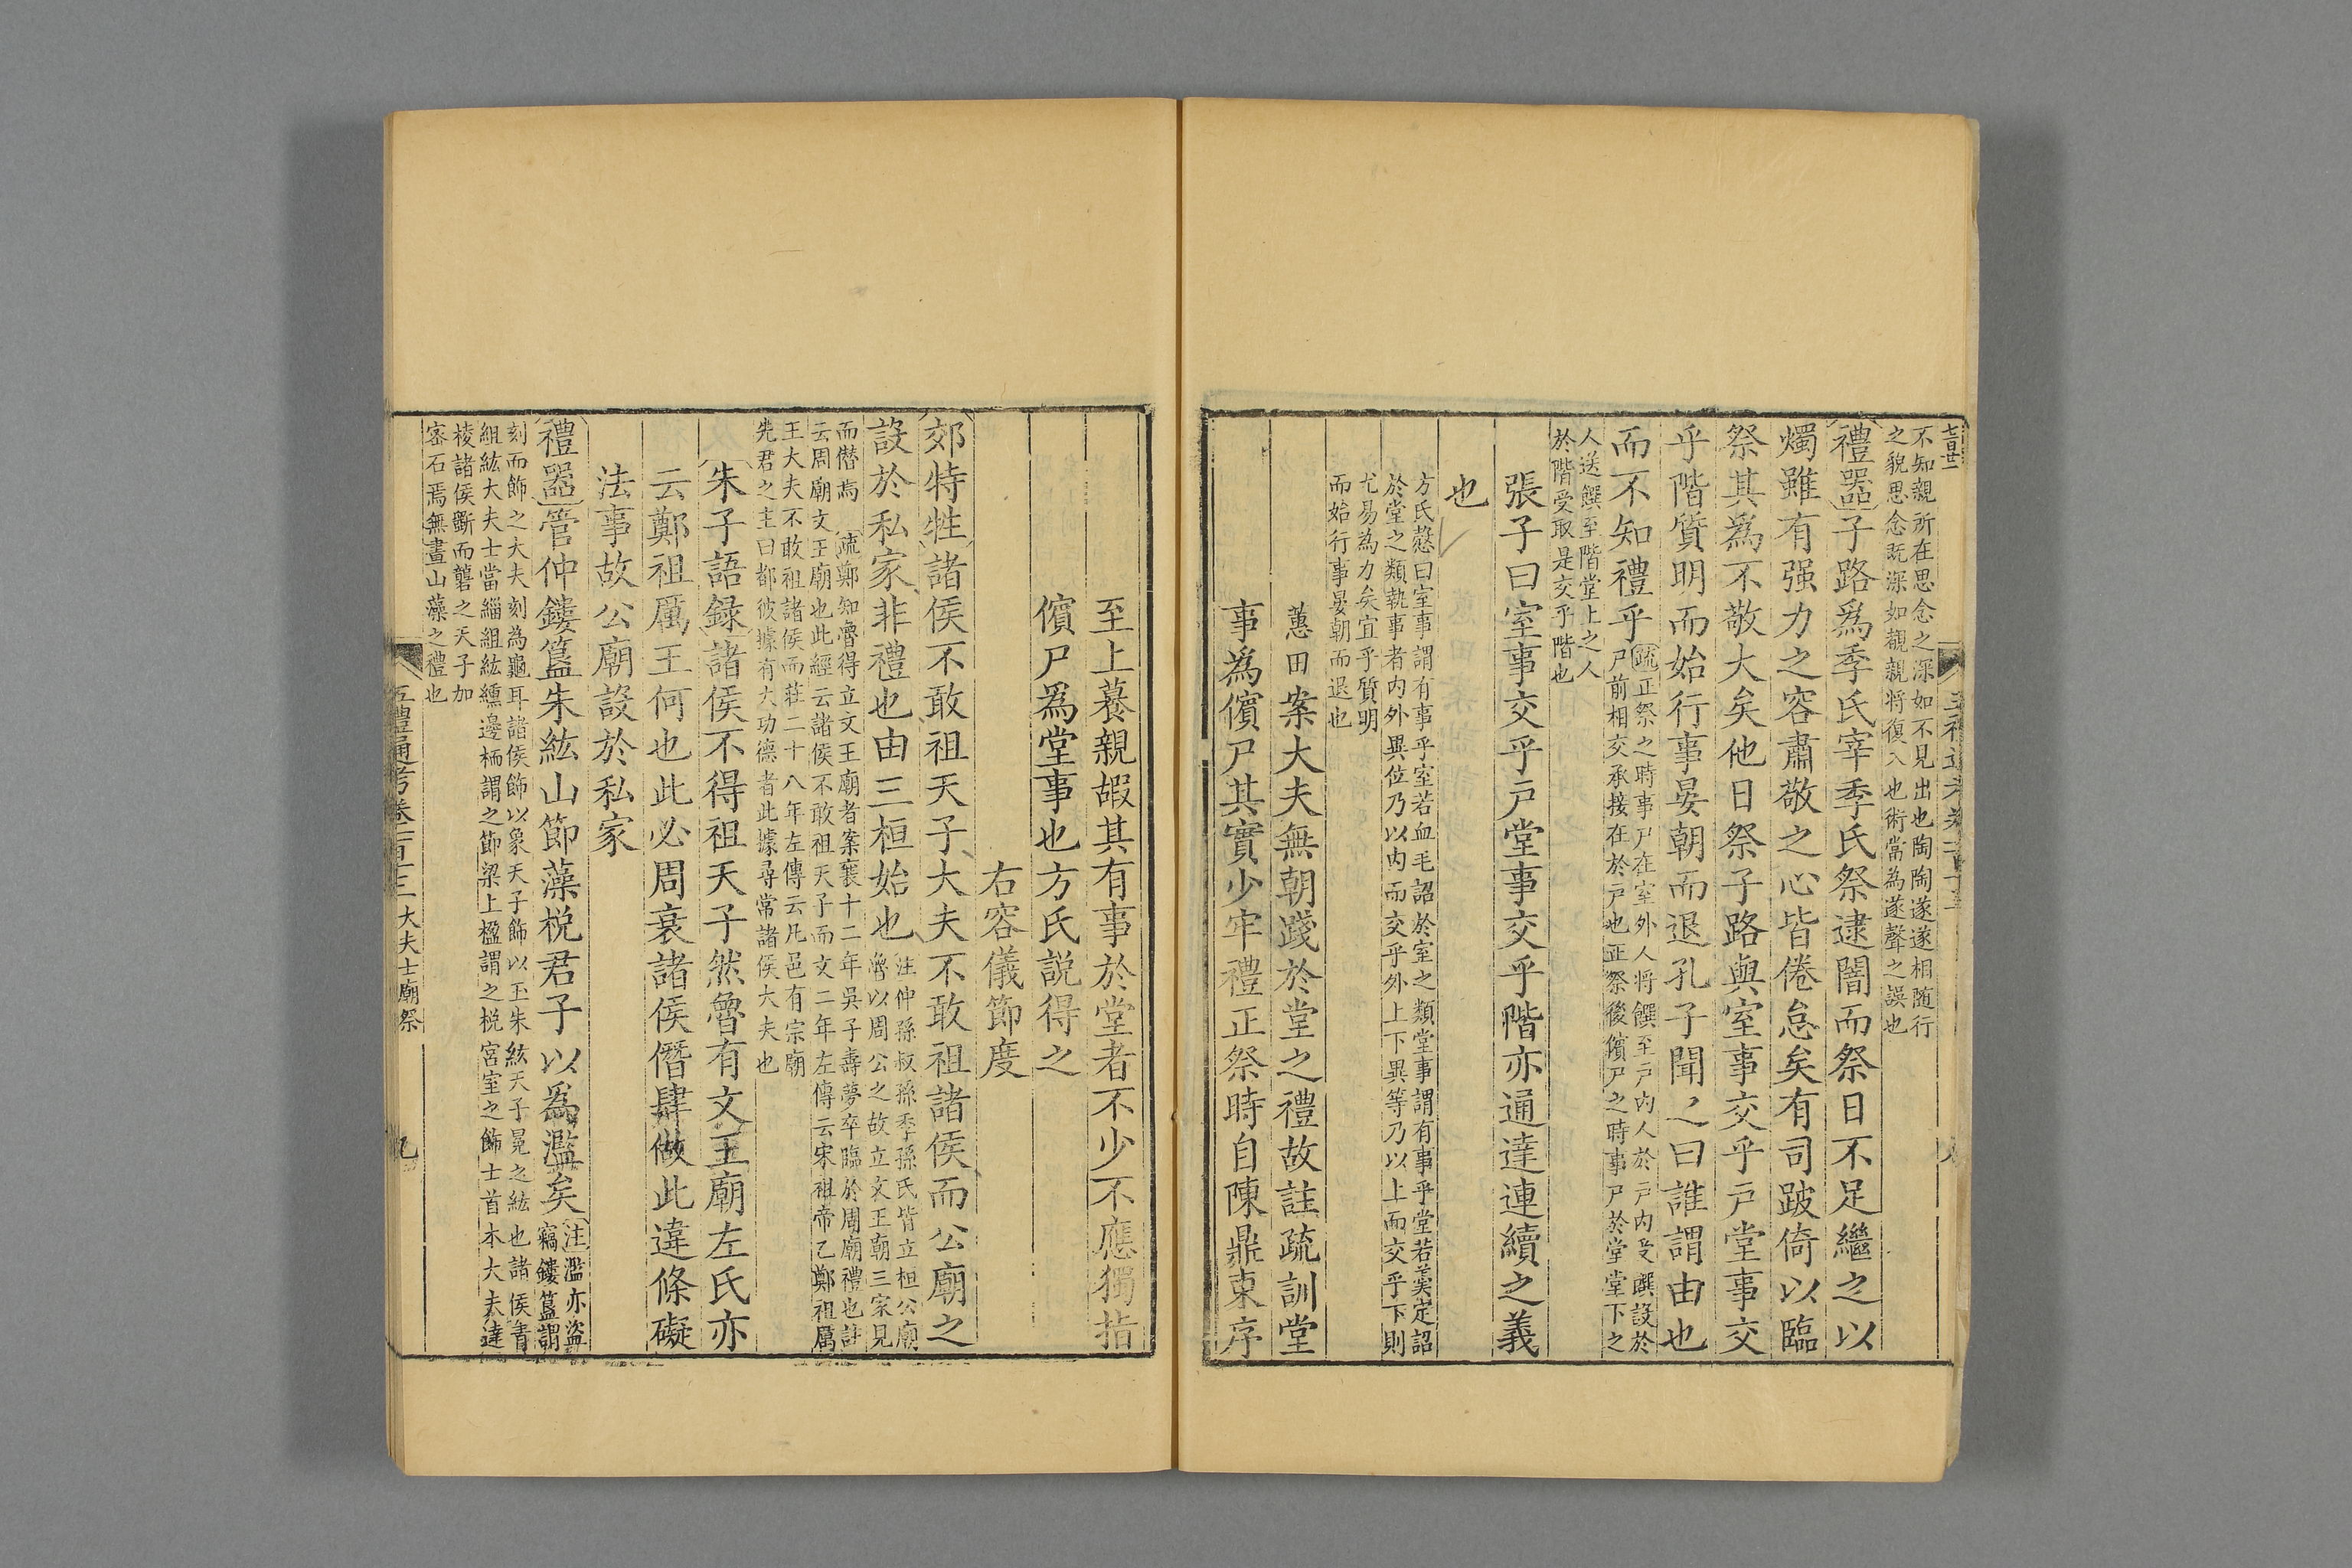 不知親所在思念之深如不見出也陶陶遂遂相随行
之貌思念既深如覩親將復入也術當為遂聲之誤也
禮器子路爲季氏宰季氏祭逮闇而祭日不足繼之以
燭雖有强力之容肅敬之心皆倦怠矣有司跛倚以臨
祭其爲不敬大矣他日祭子路與室事交乎戸堂事交
乎階質明而始行事晏朝而退孔子聞之曰誰謂由也
而不知禮乎
疏正祭之時事尸在室外人將饌至戸内人於戸内受饌設於
尸前相交承接在於戸也正祭後儐尸之時事尸於堂堂下之
人送饌至階堂上之人
於階受取是交乎階也
張子曰室事交乎戸堂事交乎階亦通達連續之義
也
方氏慤曰室事謂有事乎室若血毛詔於室之類堂事謂有事乎堂若羹定詔
於堂之類執事者内外異位乃以内而交乎外上下異等乃以上而交乎下則
尤易為力矣宜乎質明
而始行事晏朝而退也
蕙田案大夫無朝踐於堂之禮故註疏訓堂
事為儐尸其實少牢禮正祭時自陳鼎東序
至上䬸親嘏其有事於堂者不少不應獨指
儐尸爲堂事也方氏説得之
右容儀節度
郊特牲諸侯不敢祖天子大夫不敢祖諸侯而公廟之
設於私家非禮也由三桓始也
注仲孫叔孫季孫氏皆立桓公廟
魯以周公之故立文王廟三家見
而僭焉 疏鄭知魯得立文王廟者案襄十二年吳子壽夢卒臨於周廟禮也註
云周廟文王廟也此經云諸侯不敢祖天子而文二年左傳云宋祖帝乙鄭祖厲
王大夫不敢祖諸侯而莊二十八年左傳云凡邑有宗廟
先君之主曰都彼據有大功德者此據尋常諸侯大夫也
朱子語録諸侯不得祖天子然魯有文王廟左氏亦
云鄭祖厲王何也此必周衰諸侯僭肆做此違條礙
法事故公廟設於私家
禮器管仲鏤簋朱紘山節藻梲君子以爲濫矣
注濫亦盗
竊鏤簋謂
刻而飾之大夫刻為龜耳諸侯飾以象天子飾以玉朱紘天子冕之紘也諸侯青
組紘大夫士當緇組紘纁邊栭謂之節梁上楹謂之梲宮室之飾士首本大夫達
棱諸侯斲而礱之天子加
密石焉無畫山藻之禮也
五禮通考卷一百十三 大夫士廟祭 九